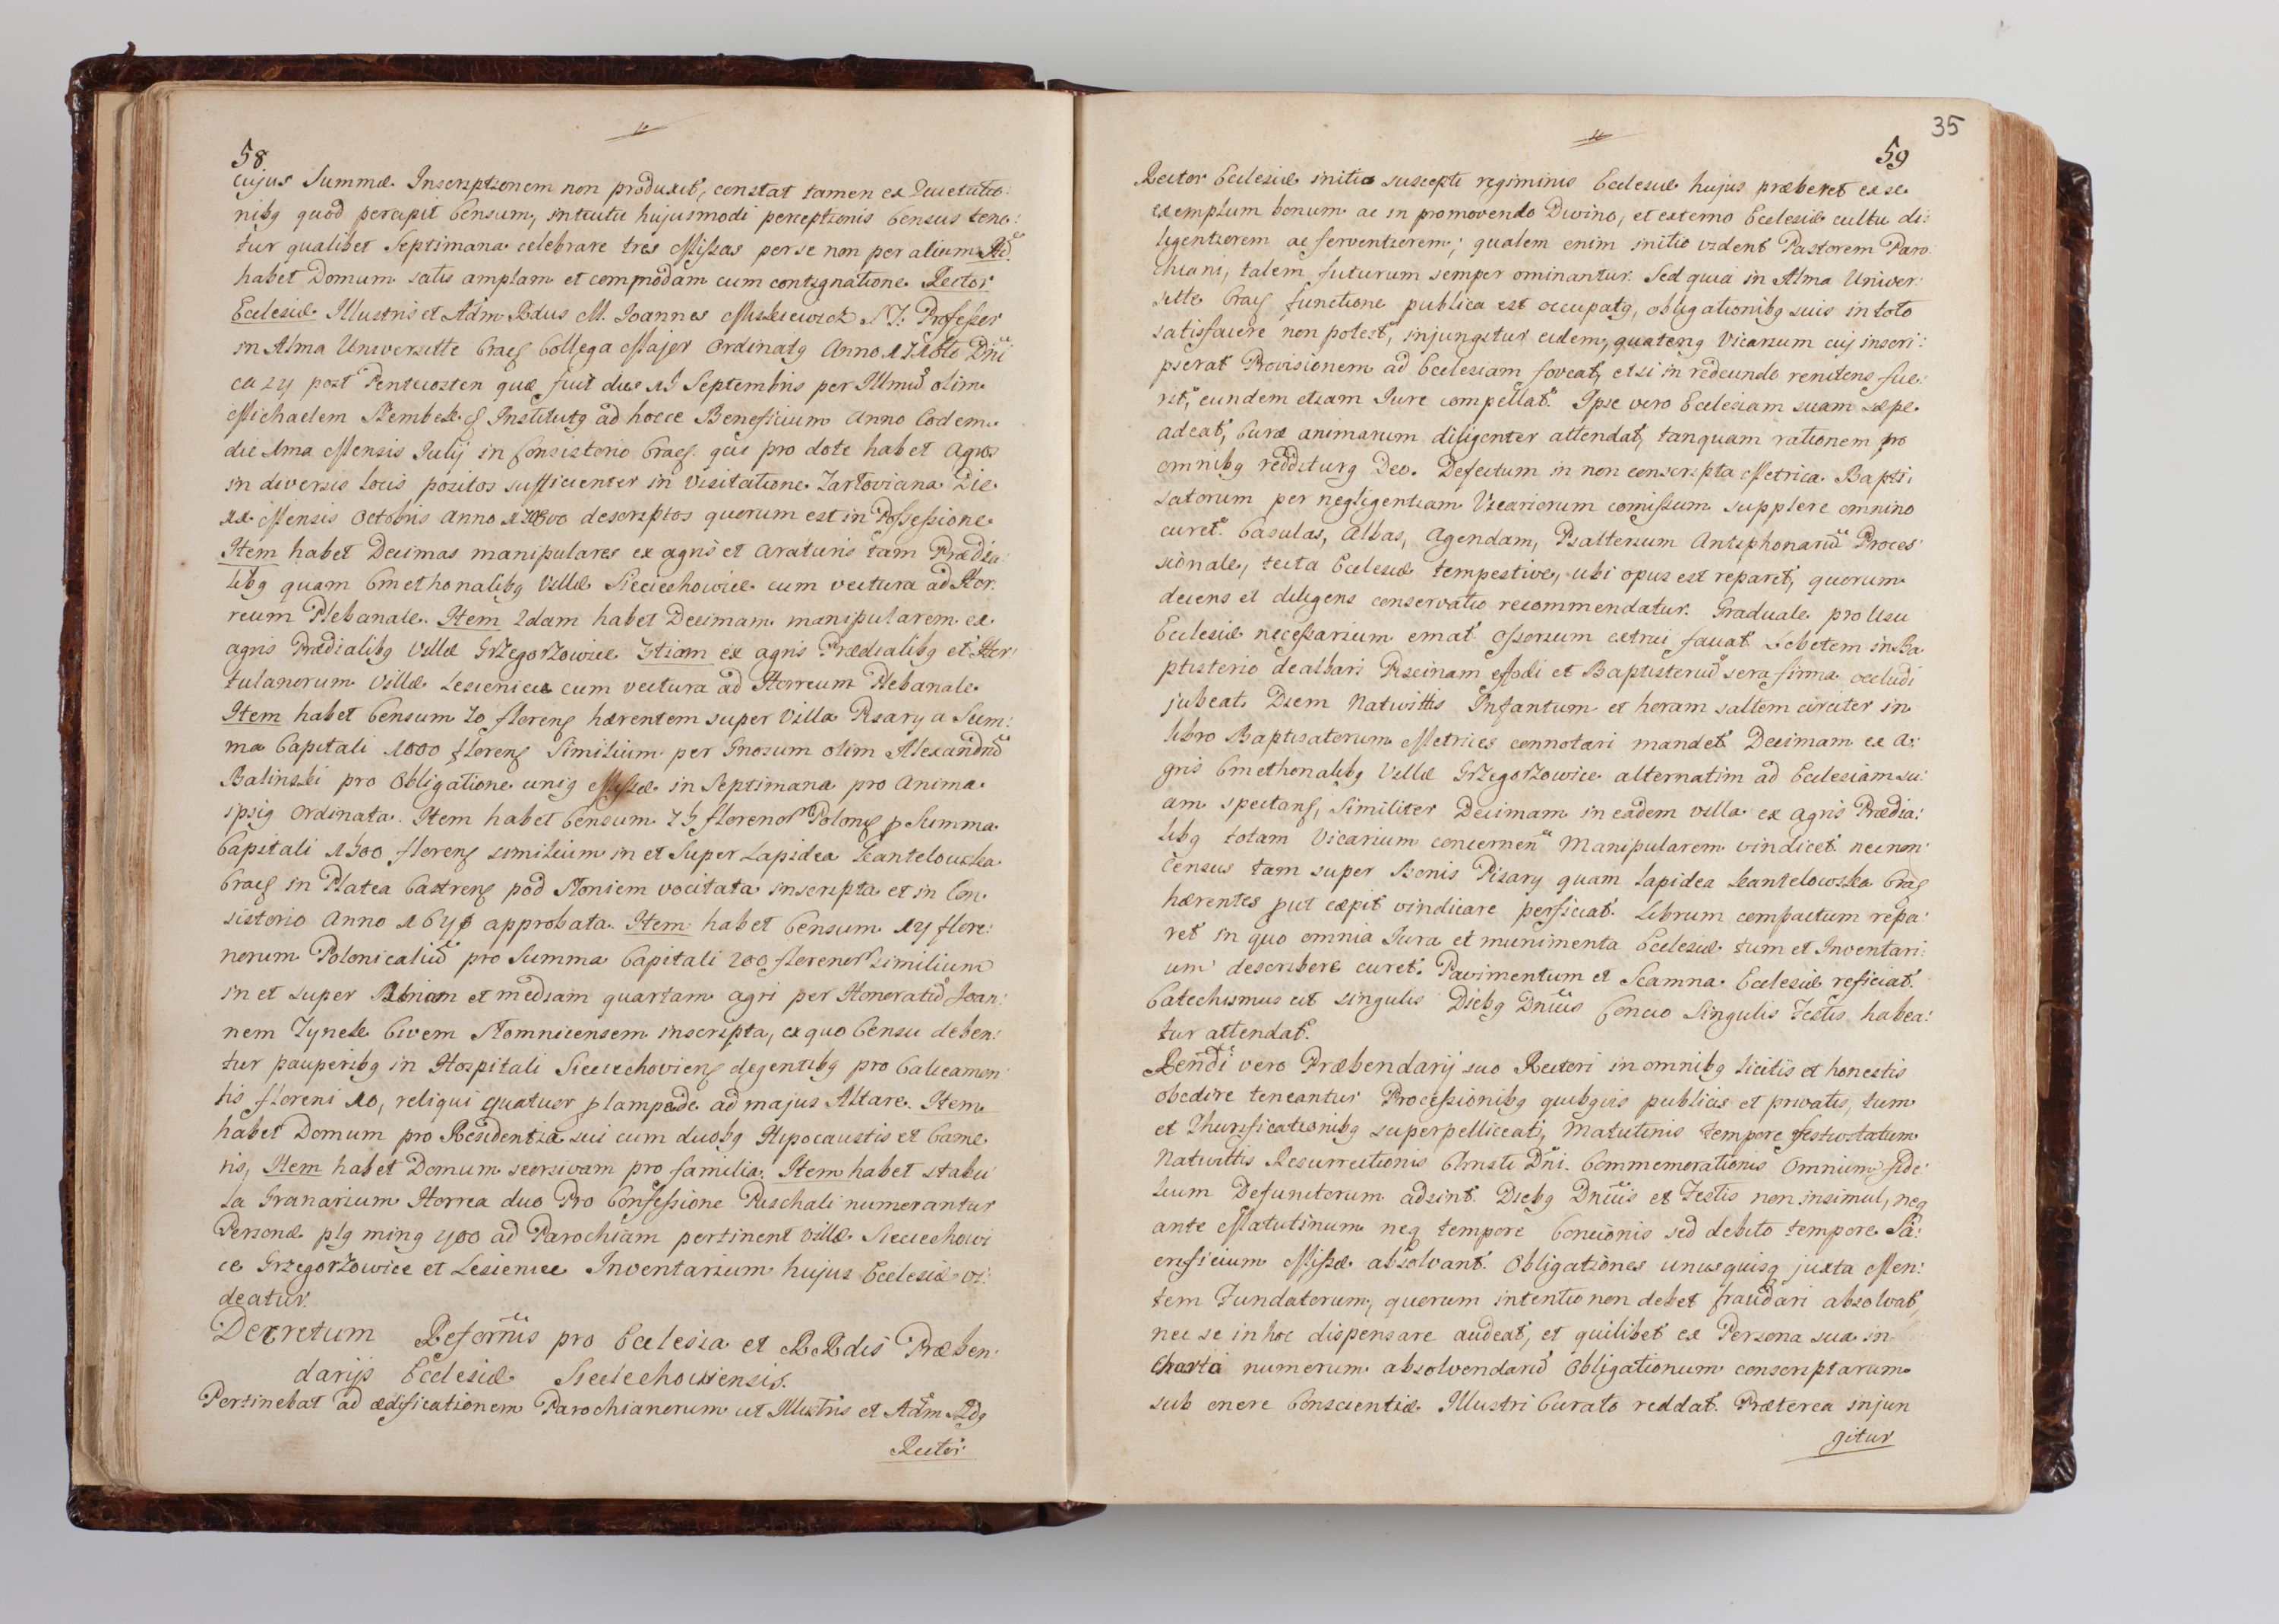 58
cujus Summæ Inscriptionem non produxit, constat tamen ex Quietatio:
nibq quod percipit Censum, intuitu hujusmodi perceptionis Census tene:
tur qualibet Septimana celebrare tres Missas per se non per alium
habet Domum satis amplam et commodam cum contignatione Rector
Ecclesiæ Illustris et Adm Rdus M. Joannes Professer
in Alma Universitte Crac Collega Major Ordinatq Anno Dni
ca post Pentecosten quæ fuit die Septembris per Illmũ olim
Michaelem Szembek Institutq ad hocce Beneficium Anno Eodem
die Mensis Julij in Consistorio Crac qui pro dote habet Agros
in diversis locis positos sufficienter in Visitatione Die
xx Mensis Octobris Anno descriptos quorum est in Possessione
Item habet Decimas manipulares ex agris et araturis tam Prædia:
libq quam Cmethonalibq Villæ Sieciechowice cum vectura ad Hor:
reum Plebanale. Item 2dam habet Decimam manipularem ex
agris Prædialibq Villæ Grzegorzowice Etiam ex agris Prædialibq et Hor:
tulanorum Villæ Lesieniec cum vectura ad Horreum Plebanale
Item habet Censum 70 floren hærentem super Villa Pisary a Sum:
ma Capitali 1000 floren Similium per Gnosum olim Alexandrũ
Balinski pro Obligatione uniq Missæ in Septimana pro Anima
ipsiq Ordinata. Item habet Censum florenor Polon p Summa
Capitali 1500 floren similium in et Super Lapidea Kantelowska
Crac in Platea Castren pod Słoniem vocitata inscripta et in Con:
sistorio Anno approbata. Item habet Censum 14 flore:
norum Polonicaliũ pro Summa Capitali 200 florenor Similium
in et super et mediam quartam agri per Honoratũ Joan:
nem Tynek Civem Słomnicensem inscripta, ex quo Censu deben:
tur pauperibq in Hospitali Sieciechovien degentibq pro Calceamen
tis floreni 10, reliqui quatuor p lampade ad majus Altare. Item
habet Domum pro Residentia sui cum duobq Hipocaustis et Came:
ris, Item habet Domum seorsivam pro familia. Item habet stabu
la Granarium Horrea duo Pro Confessione Paschali numerantur
Personæ plq minq 400 ad Parochiam pertinent Villæ Sieciechowi
ce Grzegorzowice et Lesieniec Inventarium hujus Ecclesiæ vi:
deatur.
Decretum Reformnis pro Ecclesia et RRdis Præben:
darijs Ecclesiæ Sieciechoviensis.
Pertinebat ad ædificationem Parochianorum ut Illustris et Adm Rdq
Rector
35
59
Rector Ecclesiæ initio suscepti regiminis Ecclesiæ hujus præberet ex se
exemplum bonum ac in promovendo Divino, et externo Ecclesiæ cultu di:
ligentiorem ac ferventiorem; qualem enim initio vident Pastorem Paro
chiani, talem futurum semper ominantur. Sed quia in Alma Univer:
sitte Crac functione publica est occupatq, obligationibq suis in toto
satisfacere non potest, injungitur eidem, quatenq Vicarium cuj inscri:
pserat Provisionem ad Ecclesiam foveat, et si in redeundo renitens fue:
rit, eundem etiam Jure compellat. Ipse vero Ecclesiam suam sæpe
adeat, Curæ animarum diligenter attendat, tanquam rationem pro
omnibq redditurq Deo. Defectum in non conscripta Metrica Bapti:
satorum per negligentiam Vicariorum comissum supplere omnino
curet. Casulas, Albas, Agendam, Psalterium Antiphonariũ Proces:
sionale, tecta Ecclesiæ tempestive, ubi opus est reparet, quorum
decens et diligens conservatio recommendatur. Graduale pro Usu
Ecclesiæ necessarium emat Ossorium extrui faciat Lebetem in Ba
ptisterio dealbari Piscinam effodi et Baptisteriũ sera firma occludi
jubeat. Diem Nativittis Infantum et horam saltem circiter in
libro Baptisatorum Metrices connotari mandet. Decimam ex a:
gris Cmethonalibq Villæ Grzegorzowice alternatim ad Ecclesiam su:
am spectan, Similiter Decimam in eadem villa ex agris Prædia:
libq totam Vicarium concernen Manipularem vindicet. necnon
Census tam super Bonis Pisary quam Lapidea Kantelowska Crac
hærentes put cæpit vindicare perficiat. Librum compactum repa:
ret in quo omnia Jura et munimenta Ecclesiæ tum et Inventari:
um describere curet. Pavimentum et Scamna Ecclesiæ reficiat.
Catechismus ut singulis Diebq Dnicis Concio Singulis Festis habea:
tur attendat.
Rendi vero Præbendarij suo Rectori in omnibq licitis et honestis
obedire teneantur Processionibq quibqvis publicis et privatis, tum
et Thurificationibq superpelliceati, Matutinis tempore festivitatum
Nativittis Resurrectionis Christi Dni. Commemorationis Omnium fide:
lium Defunctorum adsint. Diebq Dnicis et Festis non insimul, neq
ante Matutinum neq tempore Concionis sed debito tempore Sa:
crificium Missæ absolvant. Obligationes unusquisq juxta Men:
tem Fundatorum, quorum intentio non debet fraudari absolvat,
nec se in hoc dispensare audeat, et quilibet ex Persona sua in
Charta numerum absolvendarũ Obligationum conscriptarum
sub onere Conscientiæ Illustri Curato reddat. Præterea injun
gitur